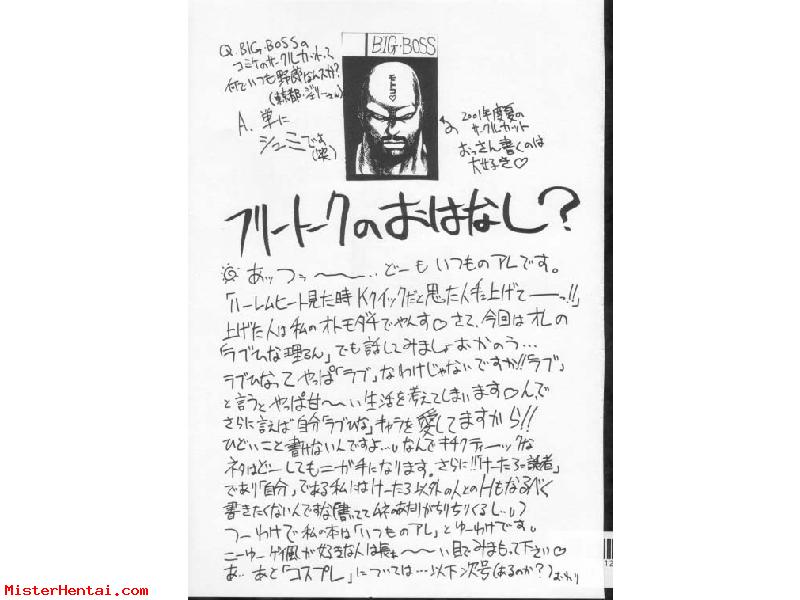 Q. BIG・BOSSの
コミケのサークルカットって
何でいつも野郎なんスか?
A. 単に
シュミです
(笑)
BIG・BOSS
2001年度夏の
サークルカット
おっさん書くのは
大好き♡
フリートークのおはなし?
あッつぅ〜〜‥どーも いつものアレです。
「ハーレムヒート見た時 Kクイックだと思った人手上げてーーっ!!」
上げた人は私のオトモダチでやんす♡ さて、今回はオレの
「ラブひな理ろん」でも話してみましょおかのう…
ラブひなって やっぱ「ラブ」なわけじゃないですか!!「ラブ」
と言うと やっぱ甘〜〜い生活を考えてしまいます♡んで
さらに言えば自分「ラブひな」キャラを愛してますから!!
ひどいこと書けないんですよ…なんでキチクティーックな
ネタはどーしてもニガ手になります。さらに!!「けーたろ=読者」
であり「自分」である私にはけーたろ以外の人とのHもなるべく
書きたくないんですな(書いててムネのあたりがちりちりくるし…)
つーわけで私の本は「いつものアレ」とゆーわけです。
こーゆー作風が好きな人は長ぁ〜〜い目でみまもって下さい♡
あ… あと「コスプレ」については…以下次号(あるのか?)おわり
12
MisterHentai.com